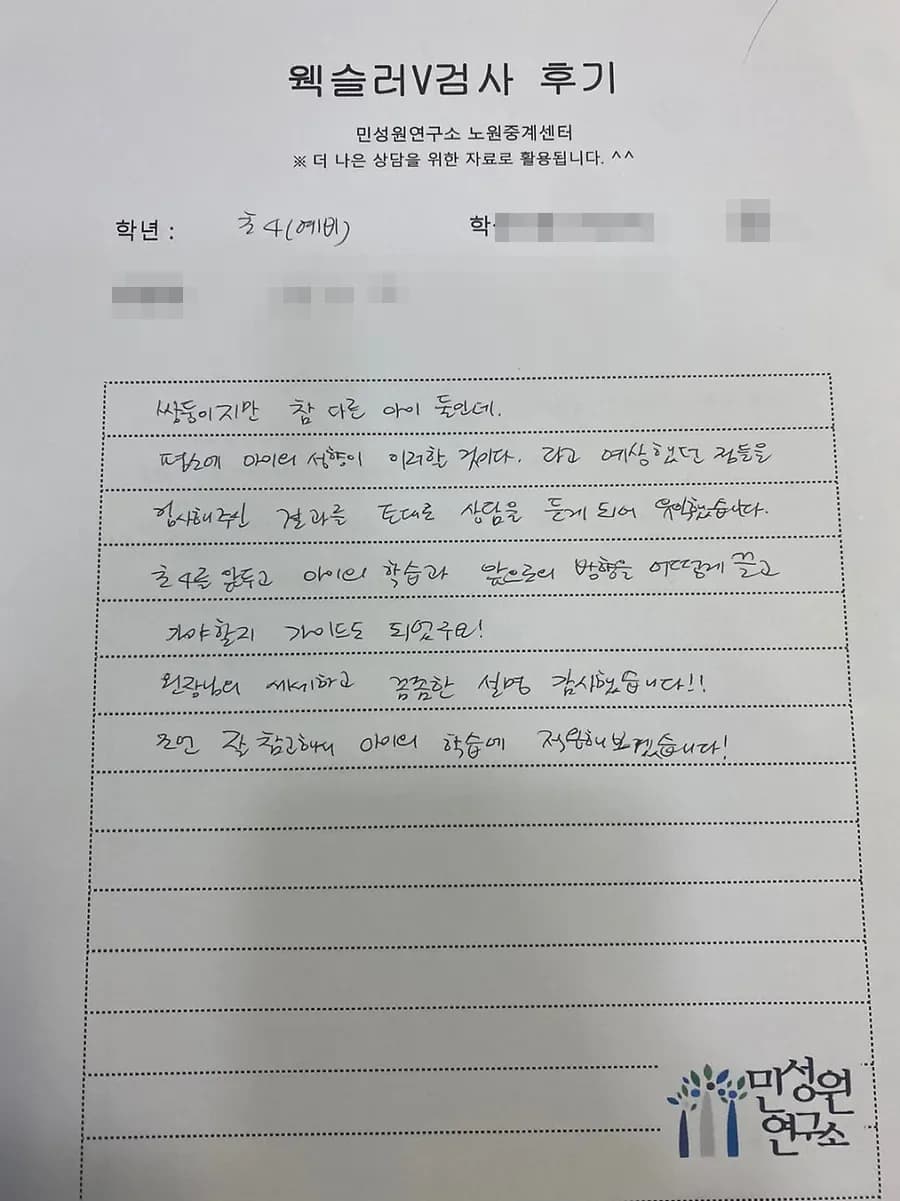 웩슬러V검사 후기
민성원연구소 노원중계센터
※ 더 나은 상담을 위한 자료로 활용됩니다. ^^
학년 : 초4(예비) 학
쌍둥이지만 참 다른 아이 둘인데.
평소에 아이의 성향이 이러할 것이다. 라고 예상했던 점들을
검사해주신 결과를 토대로 상담을 듣게 되어 유익했습니다.
초4를 앞두고 아이의 학습과 앞으로의 방향을 어떻게 끌고
가야할지 가이드도 되었구요!
원장님의 세세하고 꼼꼼한 설명 감사했습니다!!
조언 잘 참고해서 아이의 학습에 적용해보겠습니다!
민성원
연구소